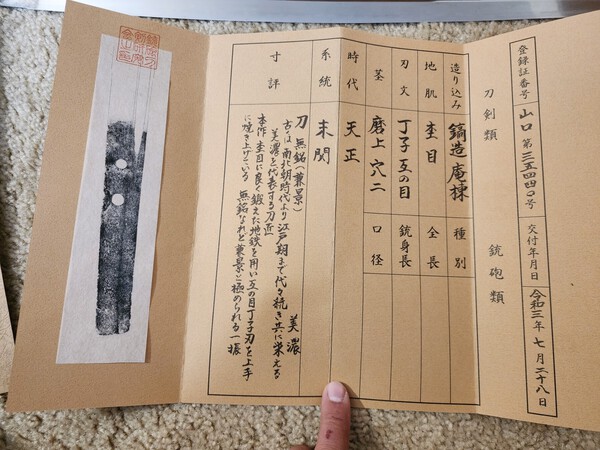 登録証番号 山口 第三五四四〇号 交付年月日 令和三年七月二十八日
刀剣類 銃砲類
造り込み 鎬造庵棟 種別
地肌 杢目 全長
刃文 丁子互の目 銃身長
茎 磨上 穴二 口径
時代 天正
系統 末関
寸評 刀 無銘(兼景) 美濃
古くは南北朝時代より江戸期まで代々続き共に栄える
美濃を代表する刀匠
本作 杢目に良く鍛えた地鉄を用い互の目丁子刃を上手
に焼き上げている 無銘なれど兼景と極められる一振